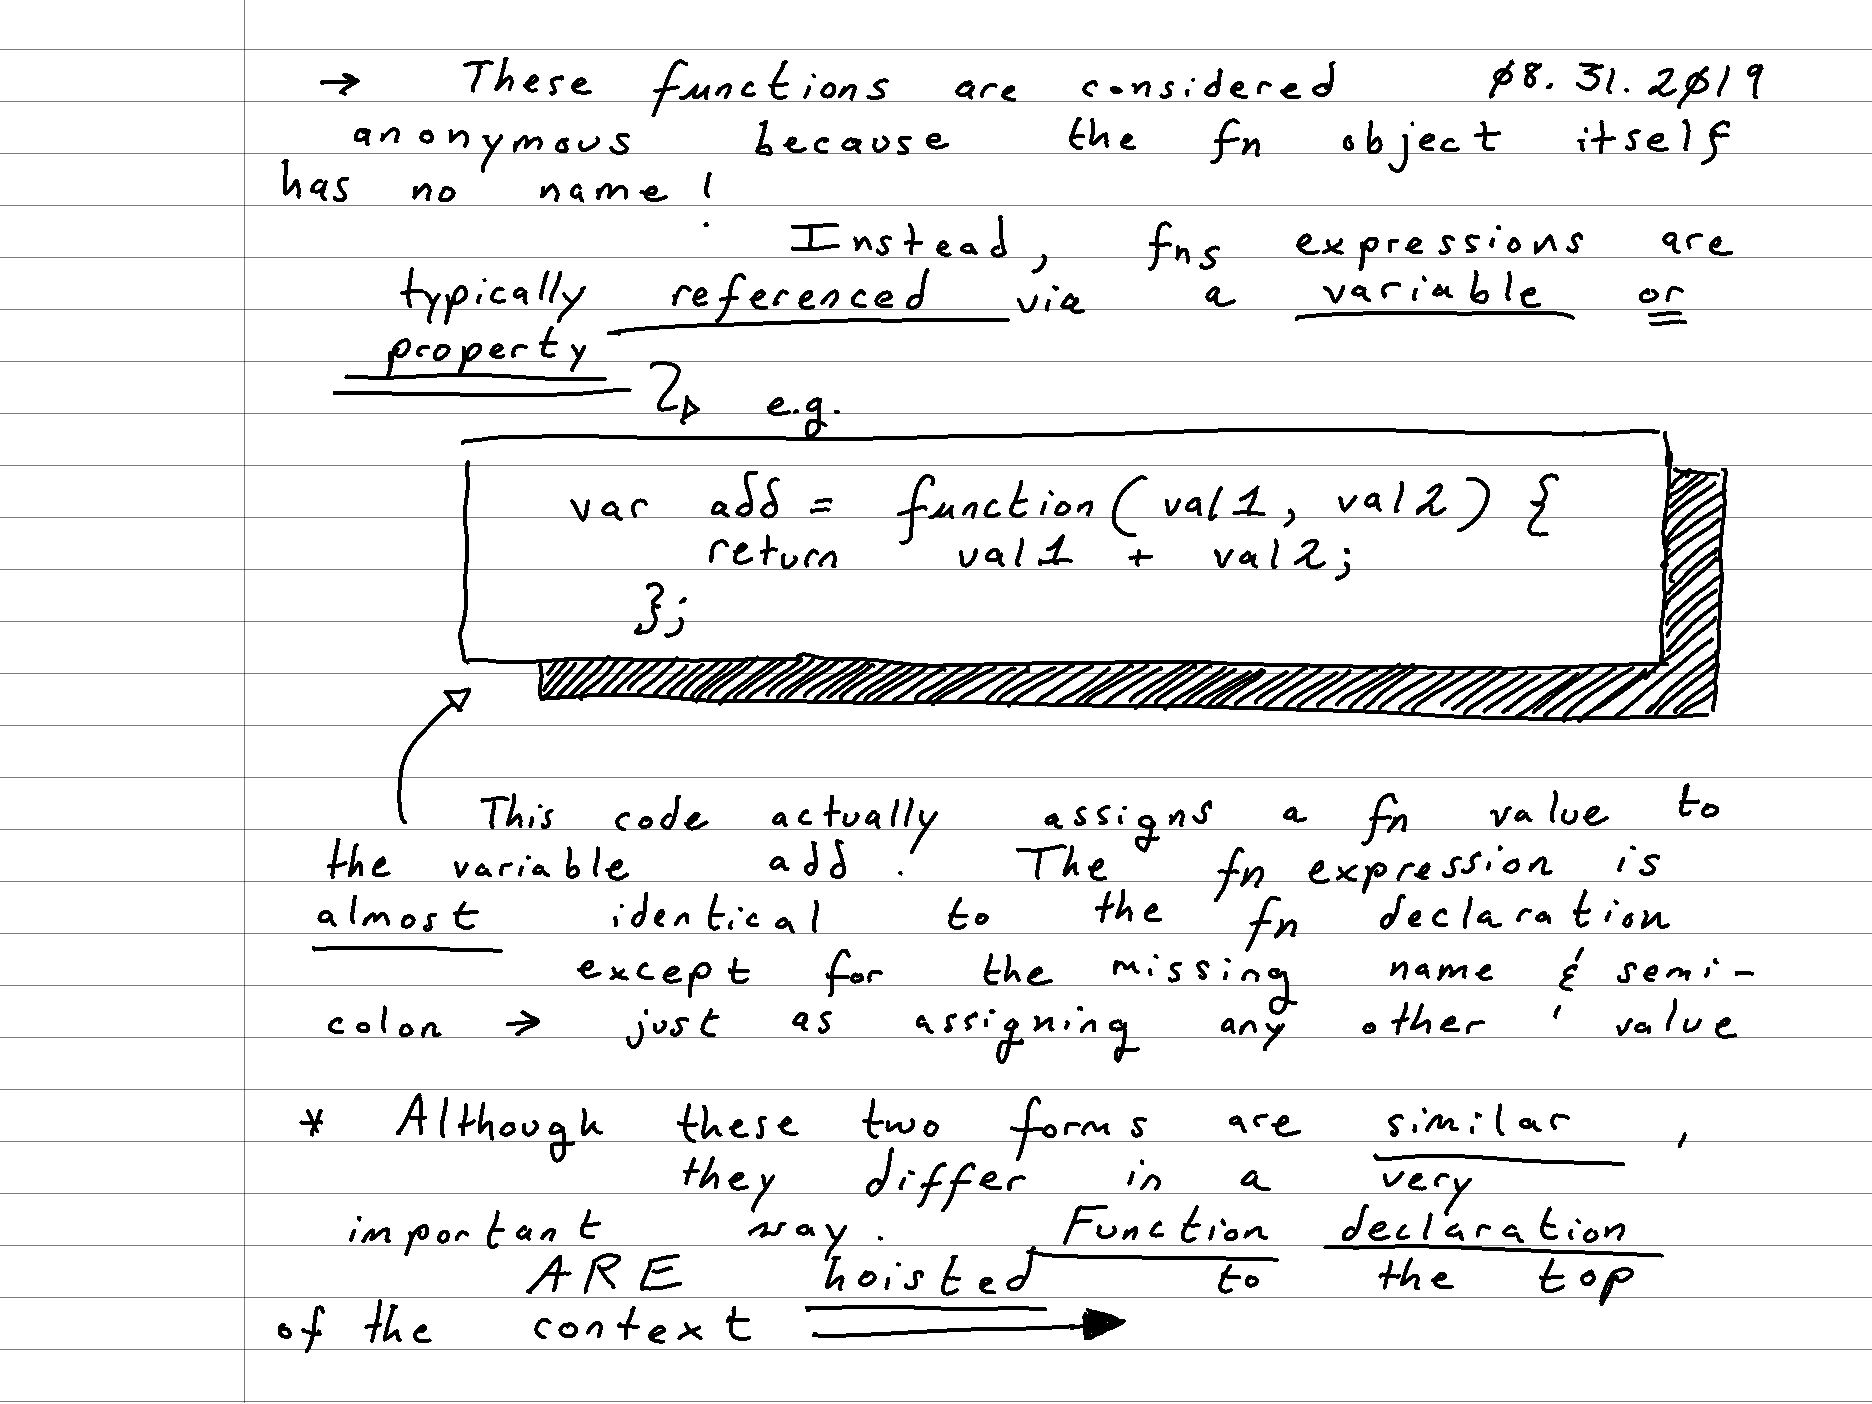 → These functions are considered 08.31.2019
anonymous because the fn object itself
has no name!
Instead, fns expressions are
typically referenced via a variable or
property
e.g.
var add = function(val1, val2) {
return val1 + val2;
};
This code actually assigns a fn value to
the variable add. The fn expression is
almost identical to the fn declaration
except for the missing name & semi-
colon → just as assigning any other value
* Although these two forms are similar,
they differ in a very
important way. Function declaration
ARE hoisted to the top
of the context →